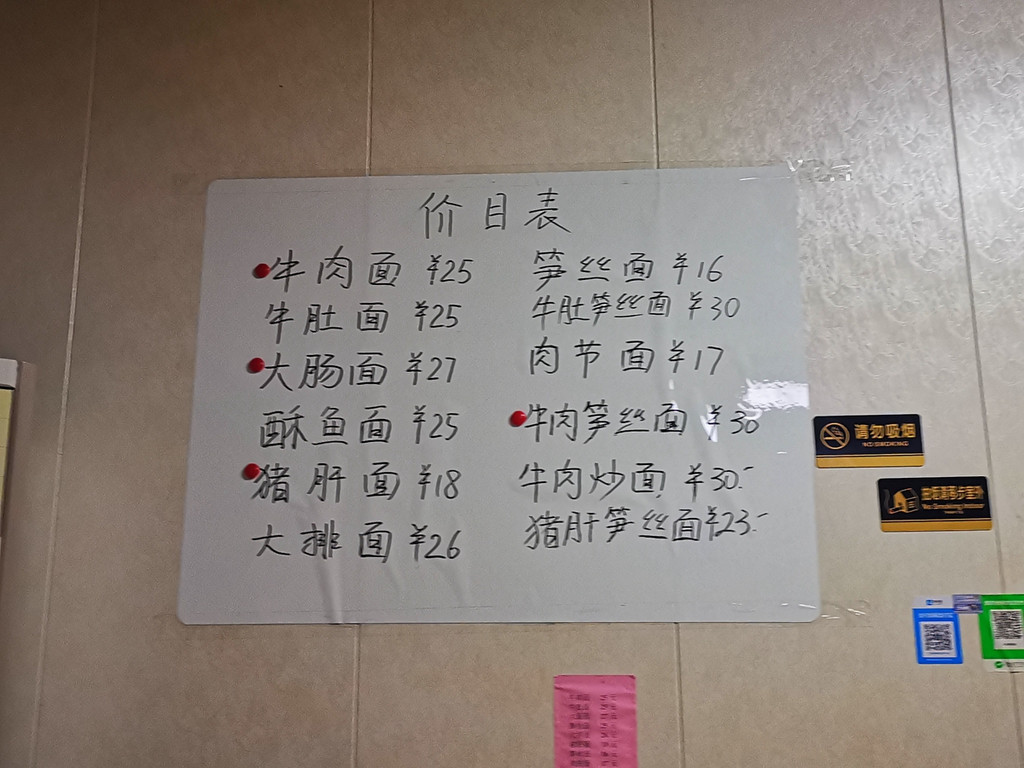 价目表
牛肉面 ¥25
牛肚面 ¥25
大肠面 ¥27
酥鱼面 ¥25
猪肝面 ¥18
大排面 ¥26
笋丝面 ¥16
牛肚笋丝面 ¥30
肉节面 ¥17
牛肉笋丝面 ¥30
牛肉炒面 ¥30.-
猪肝笋丝面 ¥23.-
请勿吸烟
NO SMOKING